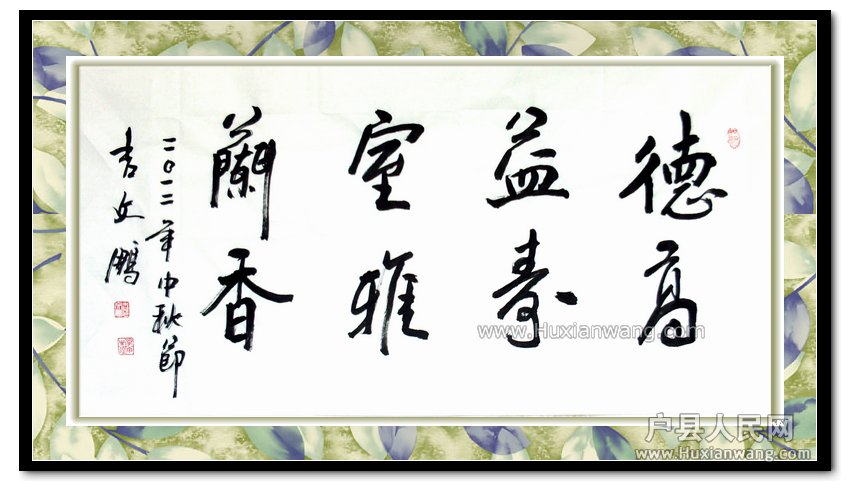 德高
益壽
室雅
蘭香
二〇一二年中秋節
www.Huxianwang.com
户县人民网
www.Huxianwang.com